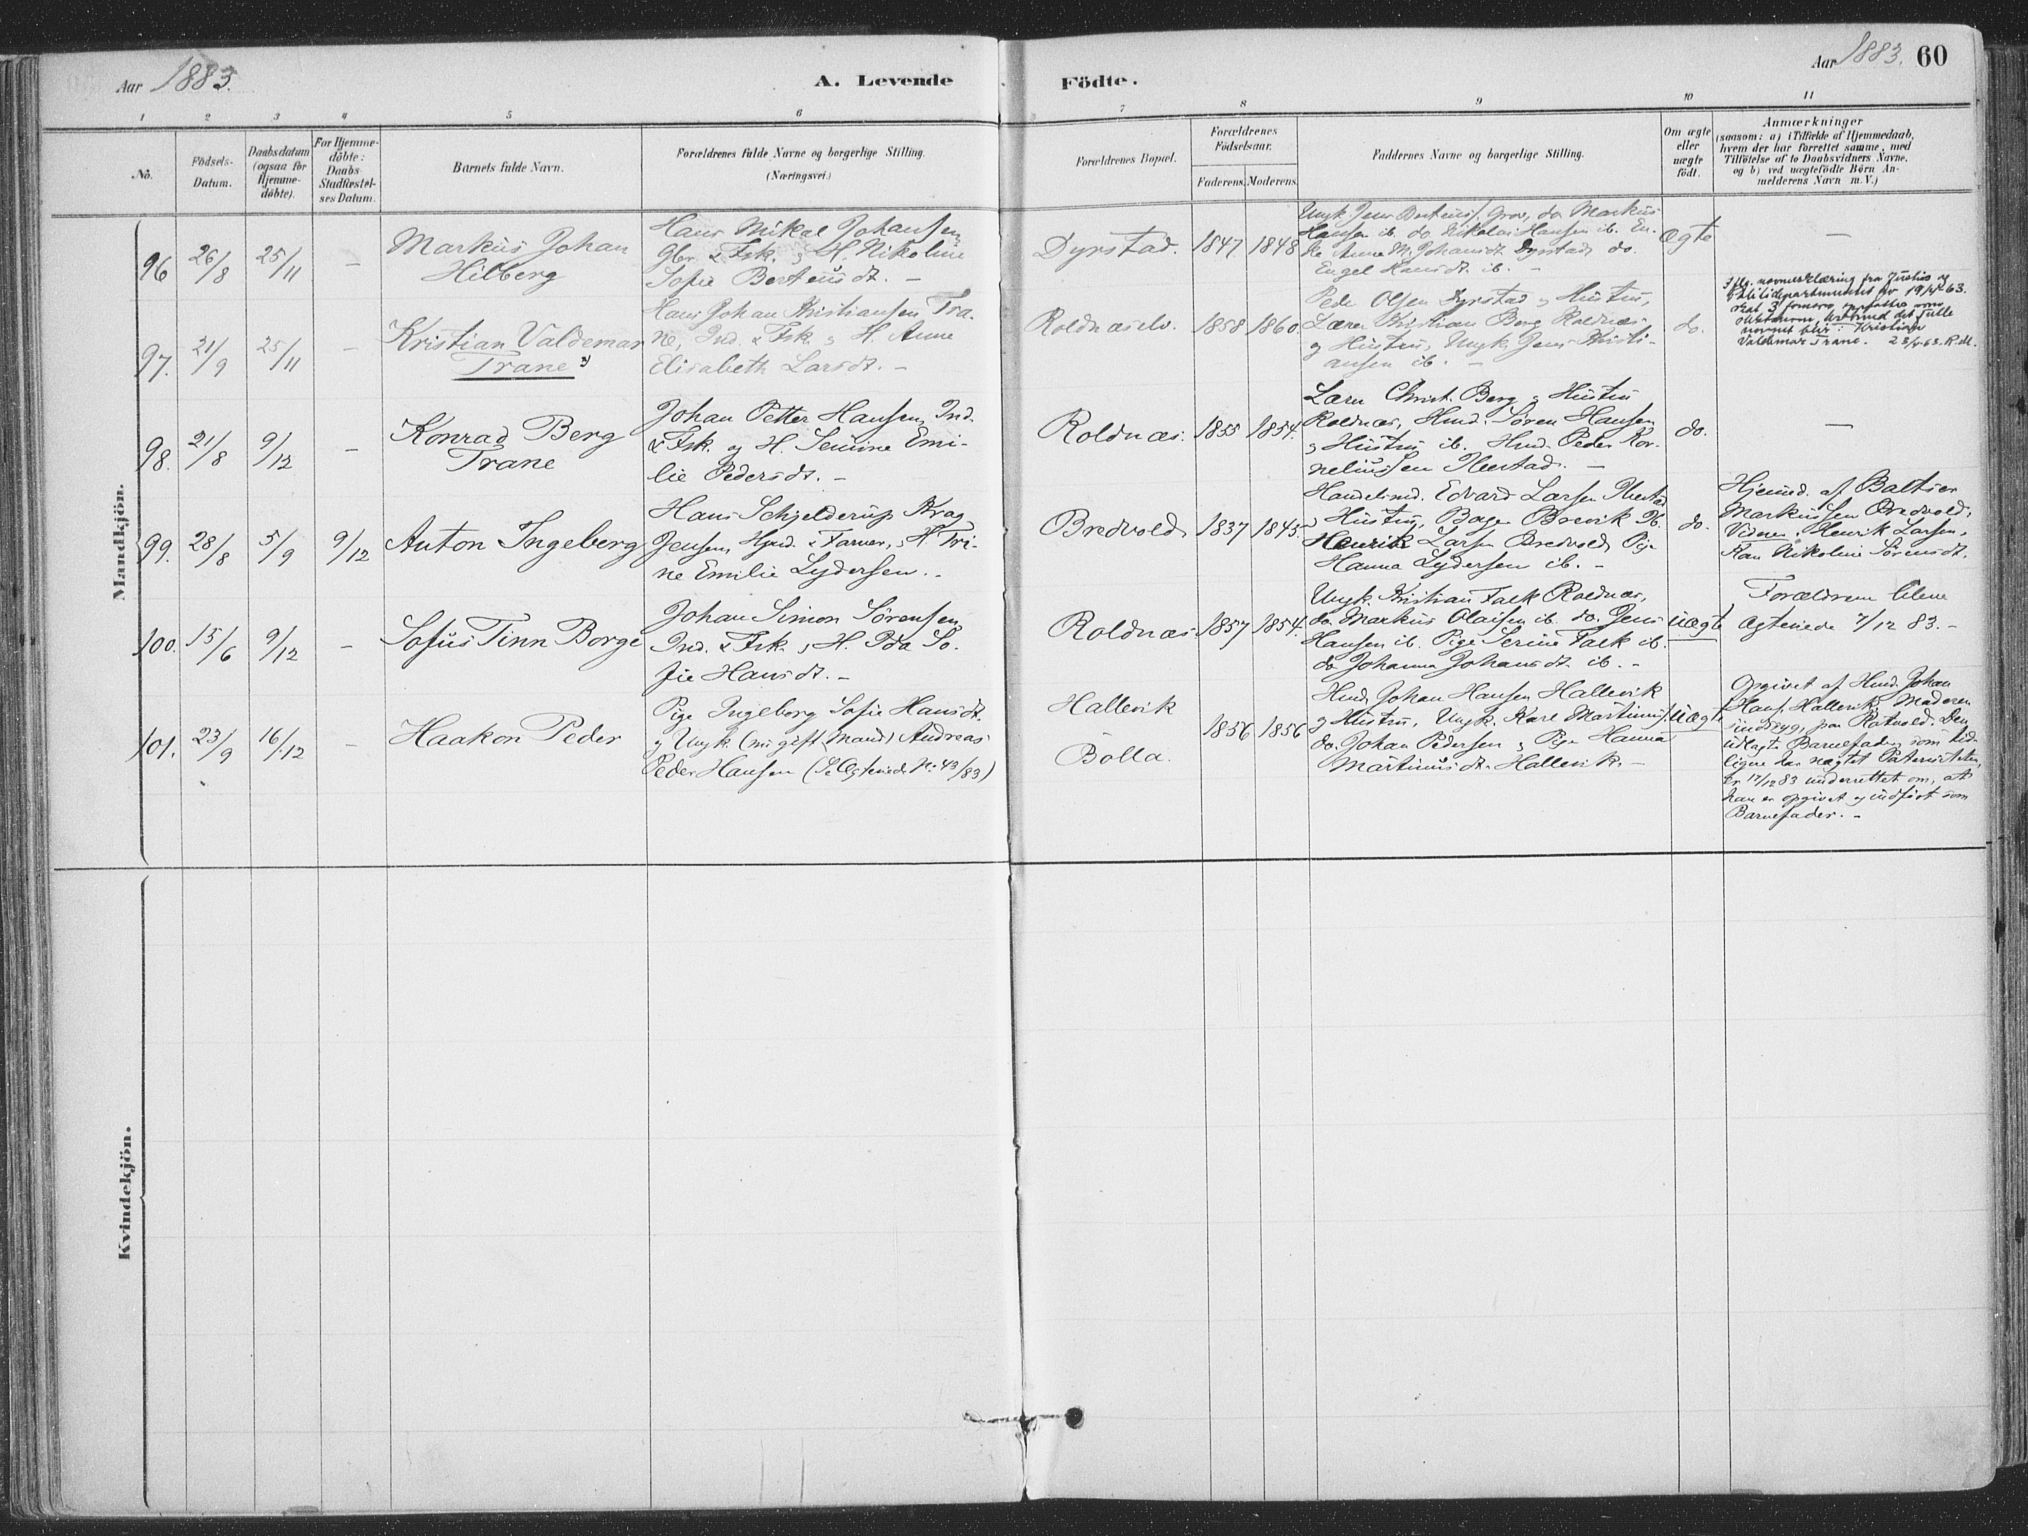 Aar 1883.
A. Levende
Födte.
Aar 1883. 60
1 2 3 4 5 6 7 8 9 10 11
No.
Födsels-
Datum.
Daabsdatum
(ogsaa för
Hjemme-
döbte).
For Hjemme-
döbte:
Daabs-
Stadfæstel-
ses Datum.
Barnets fulde Navn.
Forældrenes fulde Navne og borgerlige Stilling.
(Næringsvei.)
Forældrenes Bopæl.
Forældrenes
Födselsaar.
Faderens. Moderens.
Faddernes Navne og borgerlige Stilling.
Om ægte
eller
uægte
födt.
Anmærkninger
(saasom: a) i Tilfælde af Hjemmedaab,
hvem der har forrettet samme, med
Tilföielse af to Daabsvidners Navne,
og b) ved uægtefödte Börn An-
melderens Navn m. V.)
Mandkjön.
96 26/8 25/11 —
Markus Johan
Hilberg
Hans Mikal Johansen,
Gbr. & Fsk. og H. Nikoline
Sofie Berteusdt. —
Dyrstad. 1847 1848
Ungk. Jens Berteuss. Grov, do Markus
Hansen ib. do Nikolai Hansen ib. En-
ke Anne M. Johansdt Dyrstad, do.
Engel Hansdt. ib. —
Ægte
—
97. 21/9 25/11 —
Kristian Valdemar
Trane
Hans Johan Kristiansen Tra-
ne, Ind. & Fsk. og H. Anne
Elisabeth Larsdt. —
Roldnæselv. 1858 1860.
Peder Olsen Dyrstad og Hustru,
Lærer Kristian Berg Roldnæs
og Hustru, Ungk. Jens Kristi-
ansen ib. —
do.
Iflg. navneerklæring fra Justis og
Politidepartementet av 19/4-63.
skal
navnet blir: Kristian
Valdemar Trane. 23/4-63. R.M.
98. 21/8 9/12 —
Konrad Berg
Trane
Johan Petter Hansen, Ind.
& Fsk. og H. Senine Emi-
lie Pedersdt. —
Roldnæs. 1855 1854.
Lærer Christ. Berg og Hustru
Roldnæs, Hmd. Sören Hansen
og Hustru ib. Hmd. Peder Kor-
neliussen Ibestad. —
do.
—
99. 28/8 5/9 9/12
Anton Ingeberg
Hans Schjelderup Krag
Jensen, Hmd. & Farver, og H. Tri-
ne Emilie Lydersen. —
Bredvold. 1837 1845.
Handelsmd. Edvard Larsen Ibestad
og Hustru, Bager Brevik Ib.
Henrik Larsen Bredvold, Pige
Hanna Lydersen ib. —
do.
Hjemmd. af Baltser
Markussen Bredvold;
Vidner: Henrik Larsen,
Nikoline Sörensdt.
100. 15/6 9/12 —
Sofus Finn Borge
Johan Simon Sörensen,
Ind. & Fsk. og H. Ida So-
fie Hansdt. —
Roldnæs 1857 1854.
Ungk. Kristian Falk Roldnæs,
do. Markus Olaisen ib. do. Jens
Hansen ib. Pige Serine Falk ib.
do Johanna Johansdt ib. —
uægte
Forældrene bleve
Ægteviede 7/12 83. —
101. 23/9 16/12 —
Haakon Peder
Pige Ingeborg Sofie Hansdt.
og Ungk. (nu gift Mand) Andreas
Peder Hansen (Se Ægteviede N: 43/83)
Hallevik
Bolla. 1856 1856
Hmd. Johan Hansen Hallevik
og Hustru, Ungk. Karl Martinus.
do. Johan Pedersen og Pige Hanna
Martinusdt. Hallevik. —
uægte
Opgivet af Hmd. Johan
Hans. Hallevik, Moderen
indbyg. paa Rotvold. Den
udlagte Barnefader som tid-
ligere har nægtet Paterniteten,
er 17/12 83 underrettet om, at
han er opgivet og indfört som
Barnefader. —
Kvindekjön.